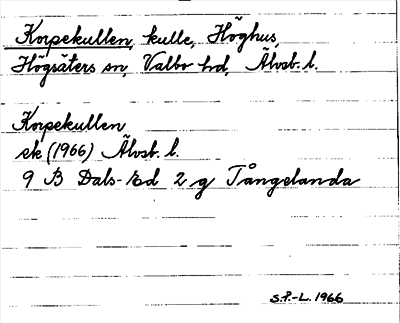 Korpekullen, kulle, Höghus,
Högsäters sn, Valbo hd, Älvsb. l.
Korpekullen
ek (1966) Älvsb. l.
9 B Dals-Ed 2 g Tångelanda
S.P.-L. 1966